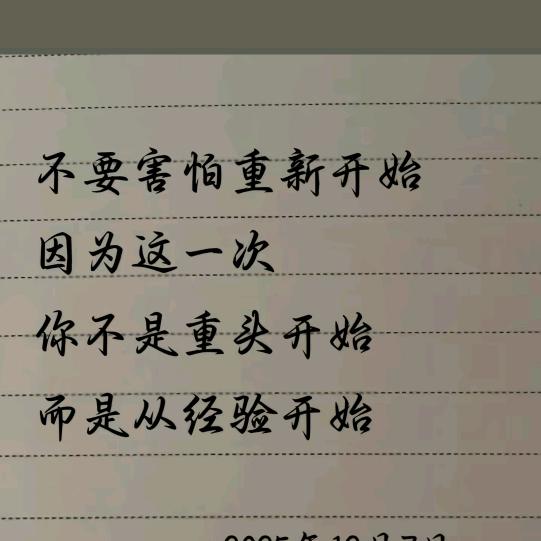 不要害怕重新开始
因为这一次
你不是重头开始
而是从经验开始